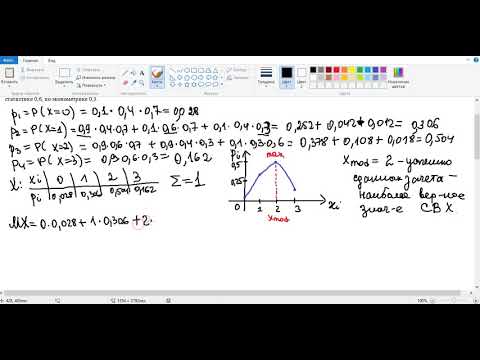 статистике 0,6, по эконометрике 0,3
p₁ = P(X=0) = 0,1 · 0,4 · 0,7 = 0,028
p₂ = P(X=1) = 0,9 · 0,4 · 0,7 + 0,1 · 0,6 · 0,7 + 0,1 · 0,4 · 0,3 = 0,252 + 0,042 + 0,012 = 0,306
p₃ = P(X=2) = 0,9 · 0,6 · 0,7 + 0,9 · 0,4 · 0,3 + 0,1 · 0,3 · 0,6 = 0,378 + 0,108 + 0,018 = 0,504
p₄ = P(X=3) = 0,9 · 0,6 · 0,3 = 0,162
X: xi 0 1 2 3 Σ = 1
pi 0,028 0,306 0,504 0,162
pi
max
0,5
0,25
0 1 2 3 xi
xmod
xmod = 2 - успешно
сданных зачета -
наиболее вер-ное
знач-е СВ X
MX = 0 · 0,028 + 1 · 0,306 + 2 ·
100%